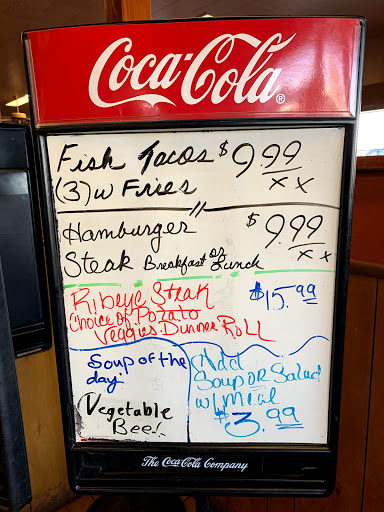 Coca-Cola®
Fish Tacos $9.99
(3) w Fries xx
Hamburger $9.99
Steak Breakfast or Lunch xx
Ribeye Steak $15.99
Choice of Potato
Veggies Dinner Roll
Soup of the
day:
Vegetable
Beef
Add
Soup or Salad
w/ Meal
$3.99
The Coca-Cola Company